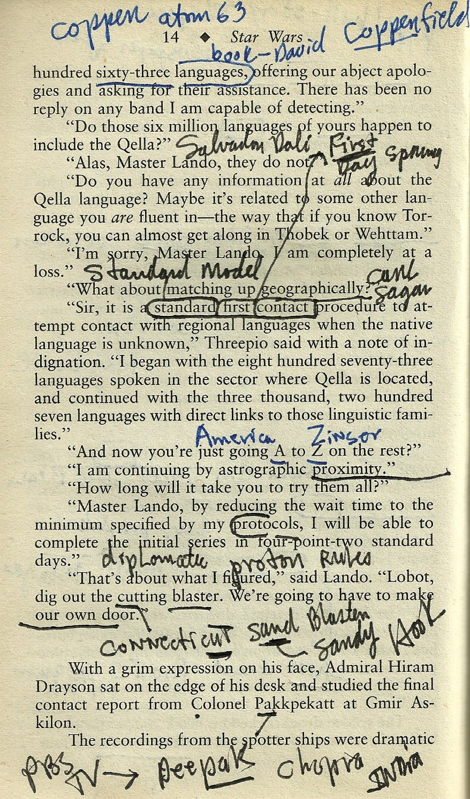 coppen atom 63
14 ◆ Star Wars
book-David Coppenfield
hundred sixty-three languages, offering our abject apolo-
gies and asking for their assistance. There has been no
reply on any band I am capable of detecting."
"Do those six million languages of yours happen to
include the Qella?" Salvador Dali First
"Alas, Master Lando, they do not." Day Spring
"Do you have any information at all about the
Qella language? Maybe it's related to some other lan-
guage you are fluent in—the way that if you know Tor-
rock, you can almost get along in Thobek or Wehttam."
"I'm sorry, Master Lando. I am completely at a
loss." Standard Model
"What about matching up geographically? Carl
Sagan
"Sir, it is a standard first contact procedure to at-
tempt contact with regional languages when the native
language is unknown," Threepio said with a note of in-
dignation. "I began with the eight hundred seventy-three
languages spoken in the sector where Qella is located,
and continued with the three thousand, two hundred
seven languages with direct links to those linguistic fami-
lies."
America Zinsor
"And now you're just going A to Z on the rest?"
"I am continuing by astrographic proximity."
"How long will it take you to try them all?"
"Master Lando, by reducing the wait time to the
minimum specified by my protocols, I will be able to
complete the initial series in four-point-two standard
days." diplomatic proton Rules
"That's about what I figured," said Lando. "Lobot,
dig out the cutting blaster. We're going to have to make
our own door."
Connecticut Sand Blaster
Sandy Hook
With a grim expression on his face, Admiral Hiram
Drayson sat on the edge of his desk and studied the final
contact report from Colonel Pakkpekatt at Gmir As-
kilon.
The recordings from the spotter ships were dramatic
PBS TV → Deepak Chopra India